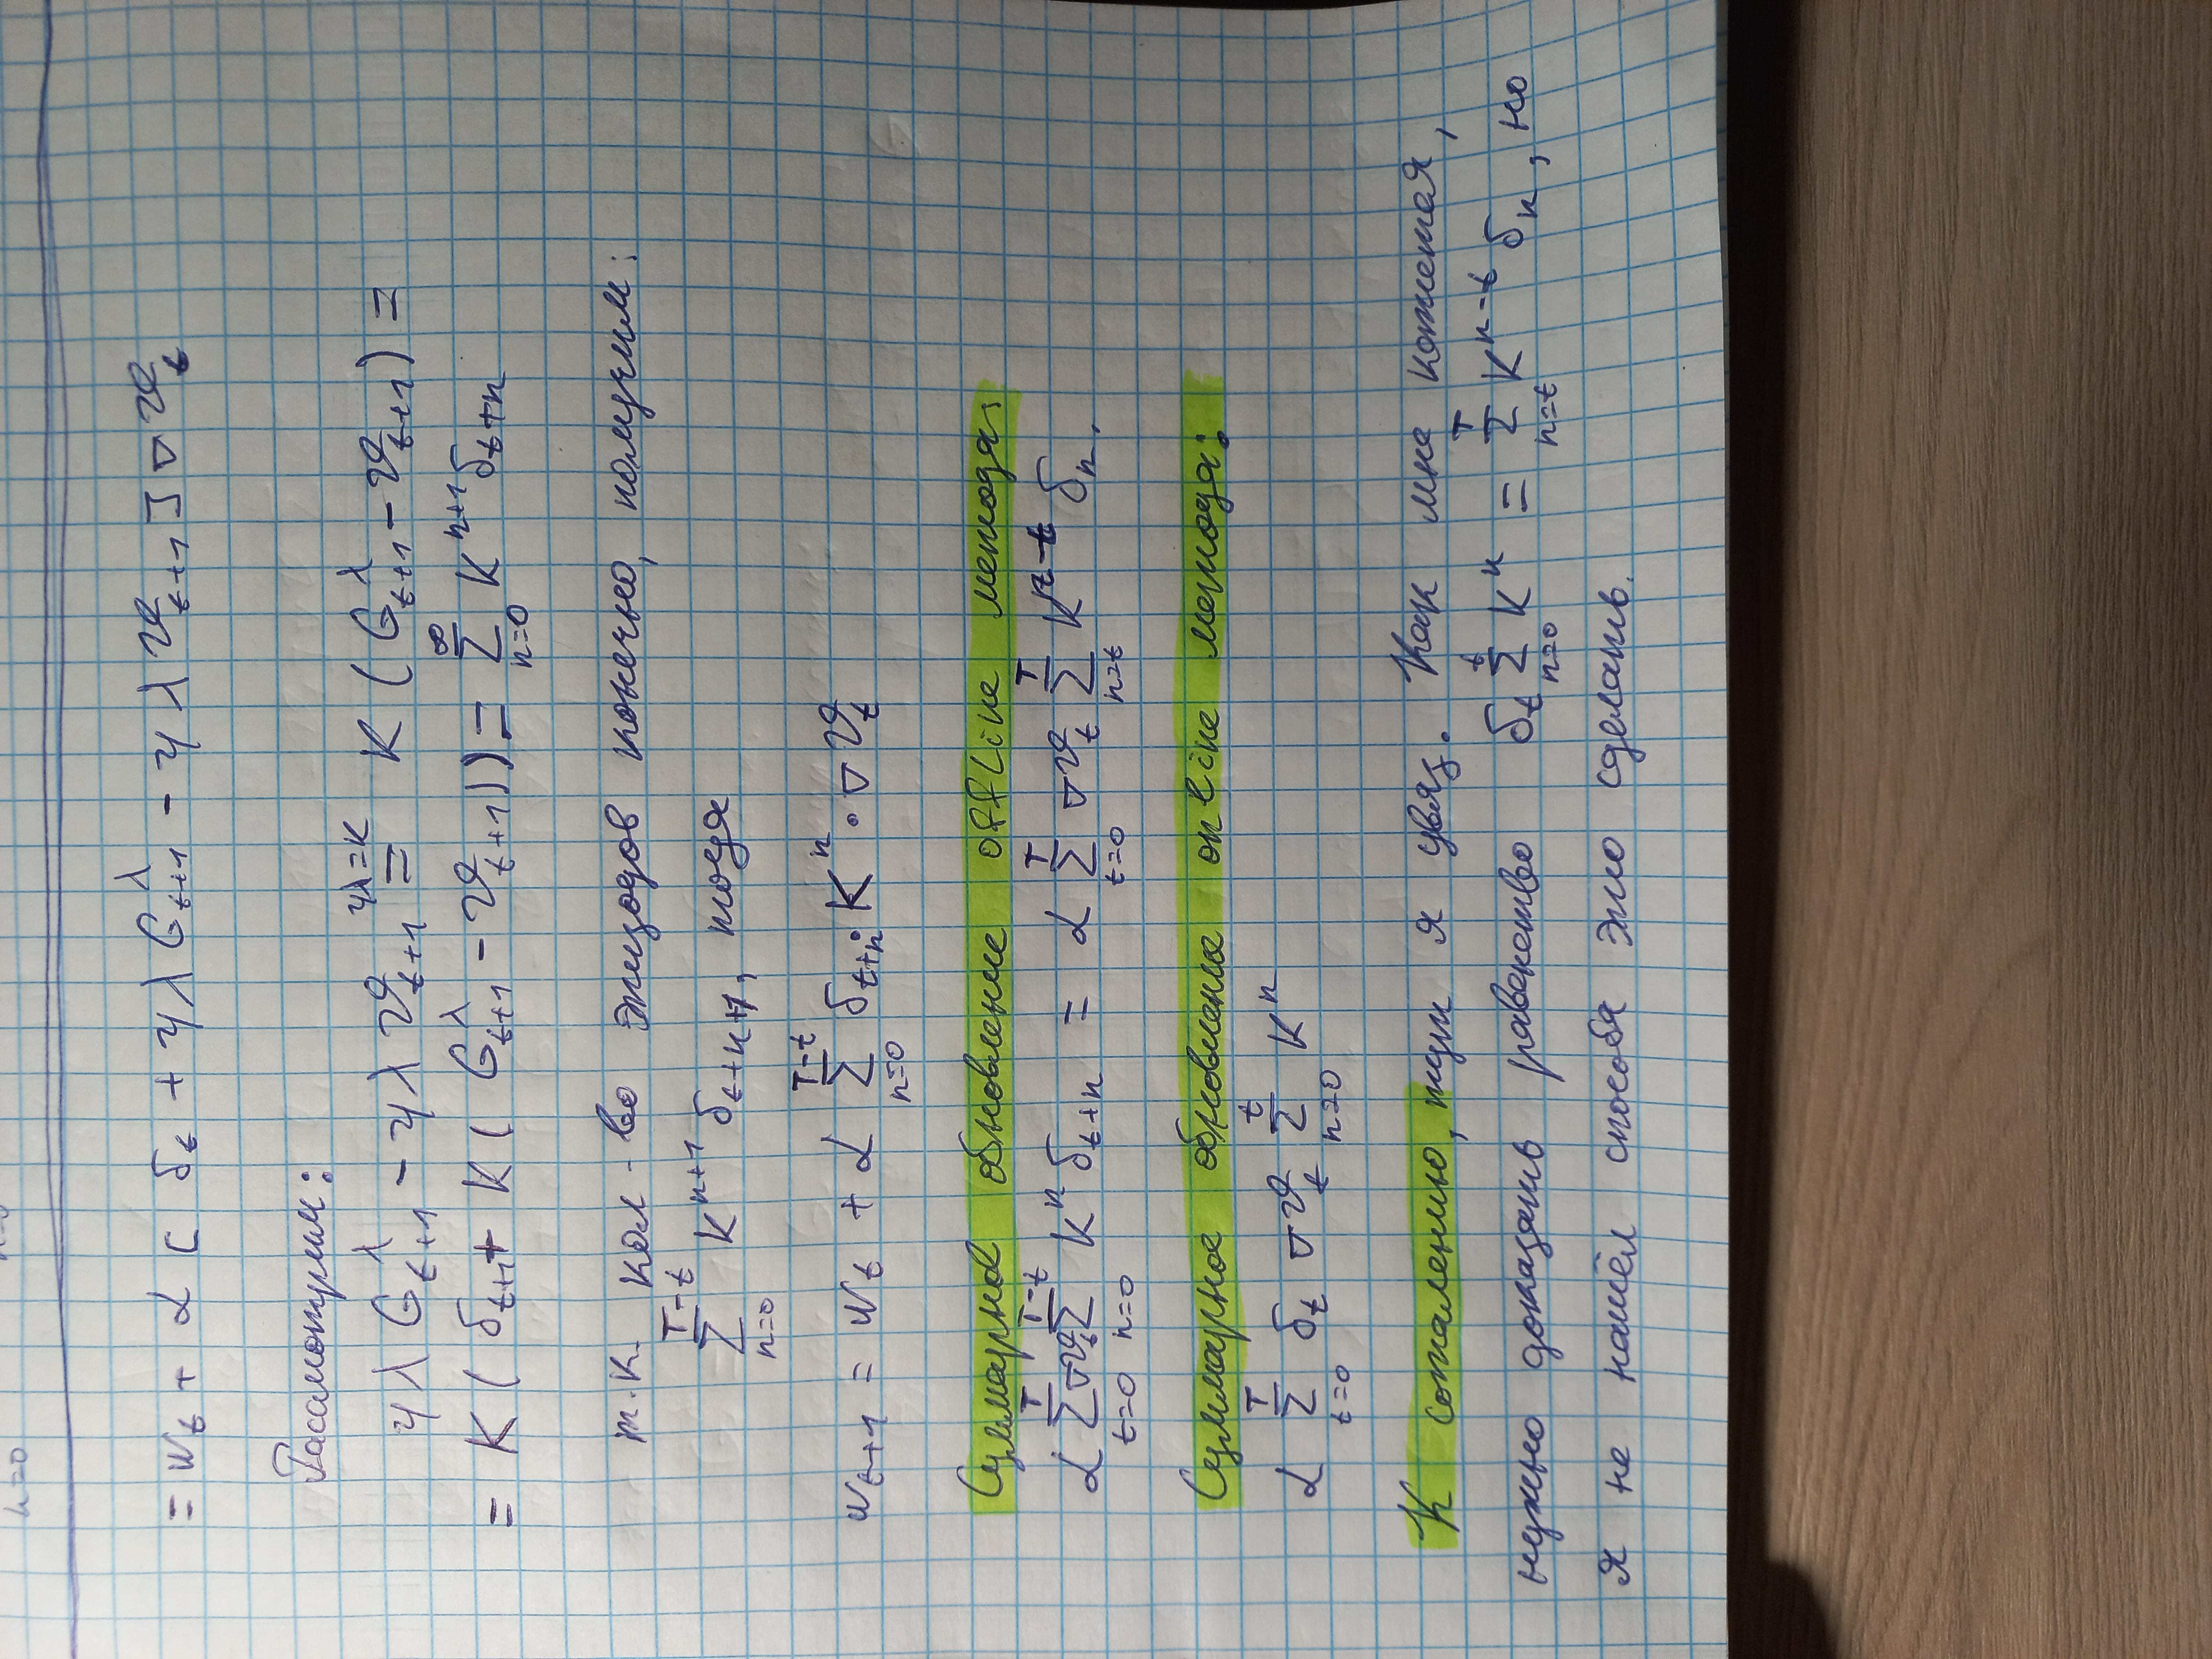 n=0 n=0
= w_t + α [ δ_t + γλ G^λ_{t+1} - γλ v_{t+1} ] ∇v_t
Рассмотрим:
γλ G^λ_{t+1} - γλ v_{t+1} =^{γλ=K} K ( G^λ_{t+1} - v_{t+1} ) =
= K ( δ_{t+1} + K ( G^λ_{t+1} - v_{t+1} ) ) = ∑_{n=0}^{∞} K^{n+1} δ_{t+n}
т.к. кол-во эпизодов конечно, получим:
∑_{n=0}^{T-t} K^{n+1} δ_{t+n+1}, тогда
w_{t+1} = w_t + α ∑_{n=0}^{T-t} δ_{t+n} · K^n · ∇v_t
Суммарное обновление offline метода:
α ∑_{t=0}^{T} ∇v_t ∑_{n=0}^{T-t} K^n δ_{t+n} = α ∑_{t=0}^{T} ∇v_t ∑_{n=t}^{T} K^{n-t} δ_n.
Суммарное обновление online метода:
α ∑_{t=0}^{T} δ_t ∇v_t ∑_{n=0}^{t} K^n
К сожалению, тут я увяз. Как мне кажется,
нужно доказать равенство δ_t ∑_{n=0}^{t} K^n = ∑_{n=t}^{T} K^{n-t} δ_n, но
я не нашёл способа это сделать.